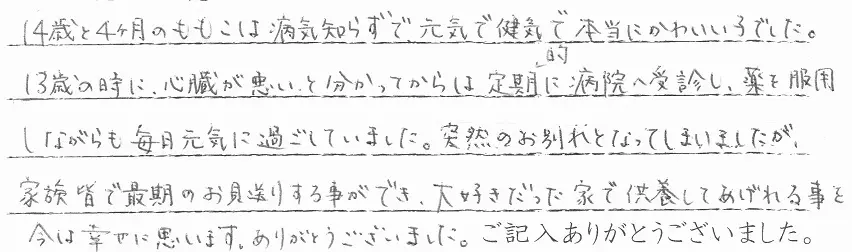 14歳と4ヶ月のももこは病気知らずで元気で健気で本当にかわいい子でした。
13歳の時に、心臓が悪いと分かってからは定期的に病院へ受診し、薬を服用
しながらも毎日元気に過ごしていました。突然のお別れとなってしまいましたが、
家族皆で最期のお見送りする事ができ、大好きだった家で供養してあげれる事を
今は幸せに思います。ありがとうございました。ご記入ありがとうございました。